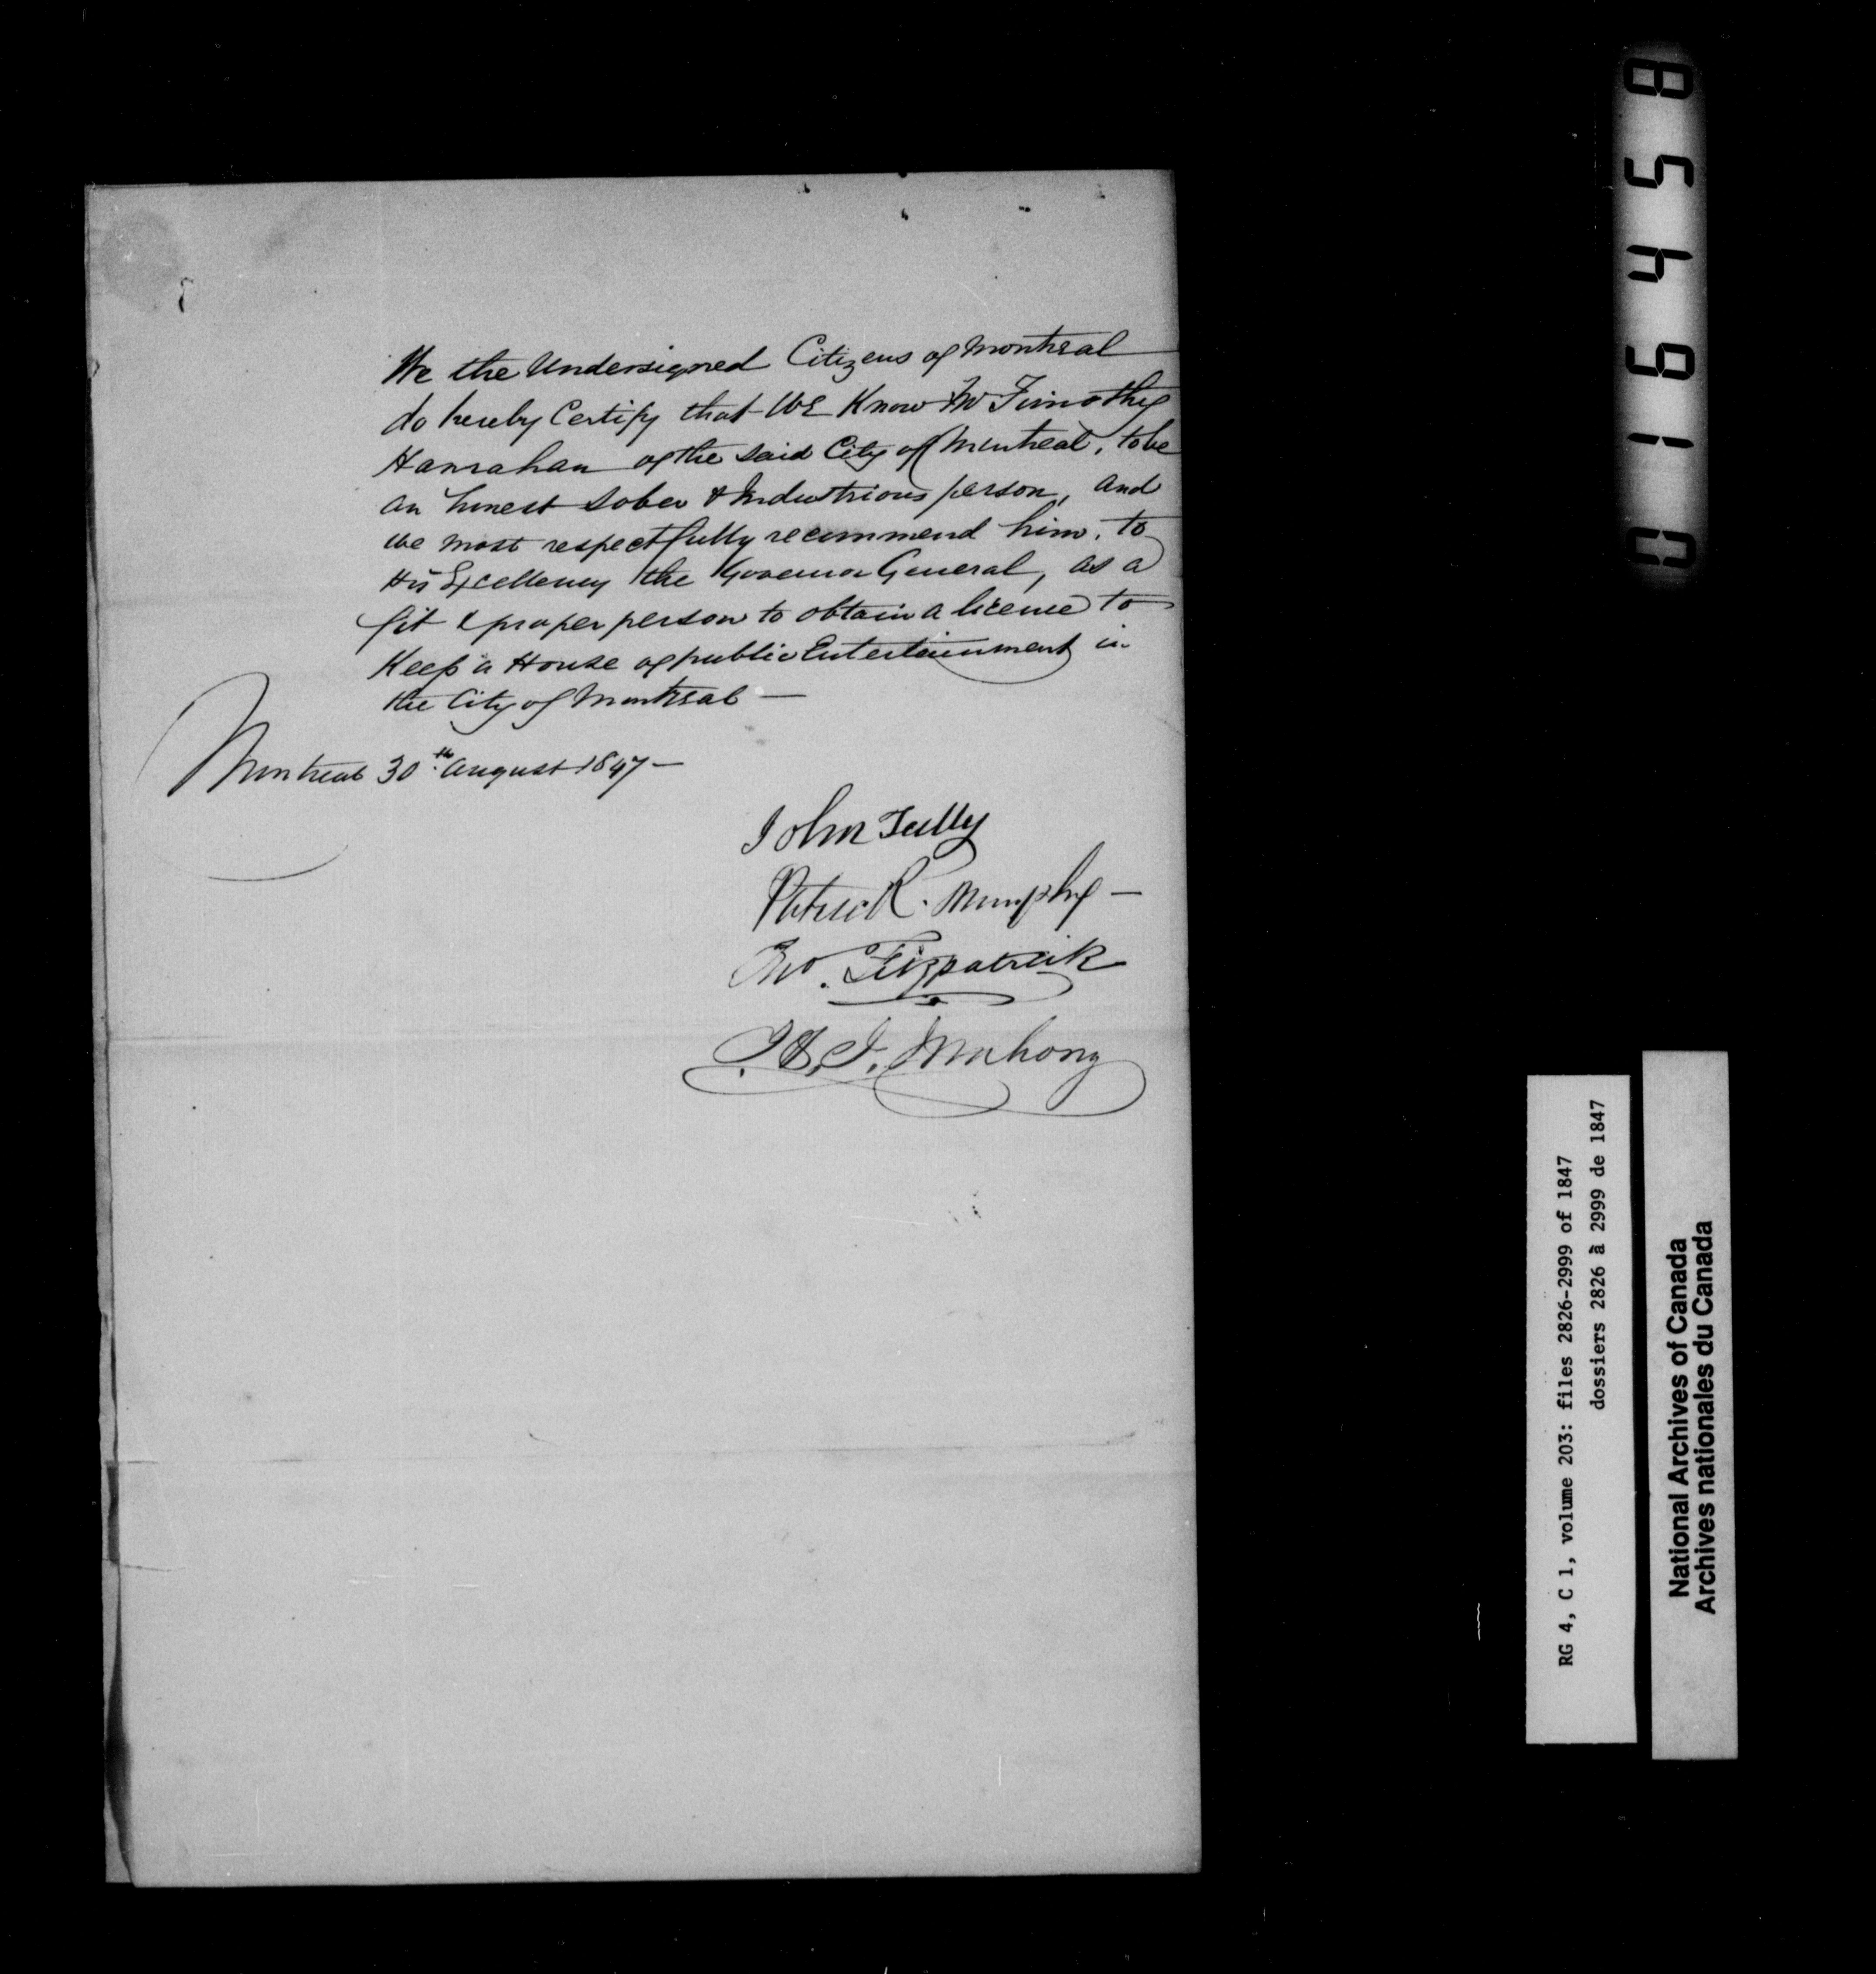 We the Undersigned Citizens of Montreal
do hereby Certify that We Know Mr Timothy
Hanrahan of the said City of Montreal, to be
an honest sober & Industrious person, and
we most respectfully recommend him, to
His Excellency the Governor General, as a
fit & proper person to obtain a license to
Keep a House of public Entertainment in
the City of Montreal —
Montreal 30th August 1847 —
John Tully
Patrick Murphy —
Jno. Fitzpatrick
Mahony
016458
RG 4, C 1, volume 203: files 2826-2999 of 1847
dossiers 2826 à 2999 de 1847
National Archives of Canada
Archives nationales du Canada